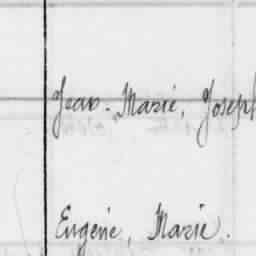 Jean-Marie, Joseph
Eugénie, Marie.